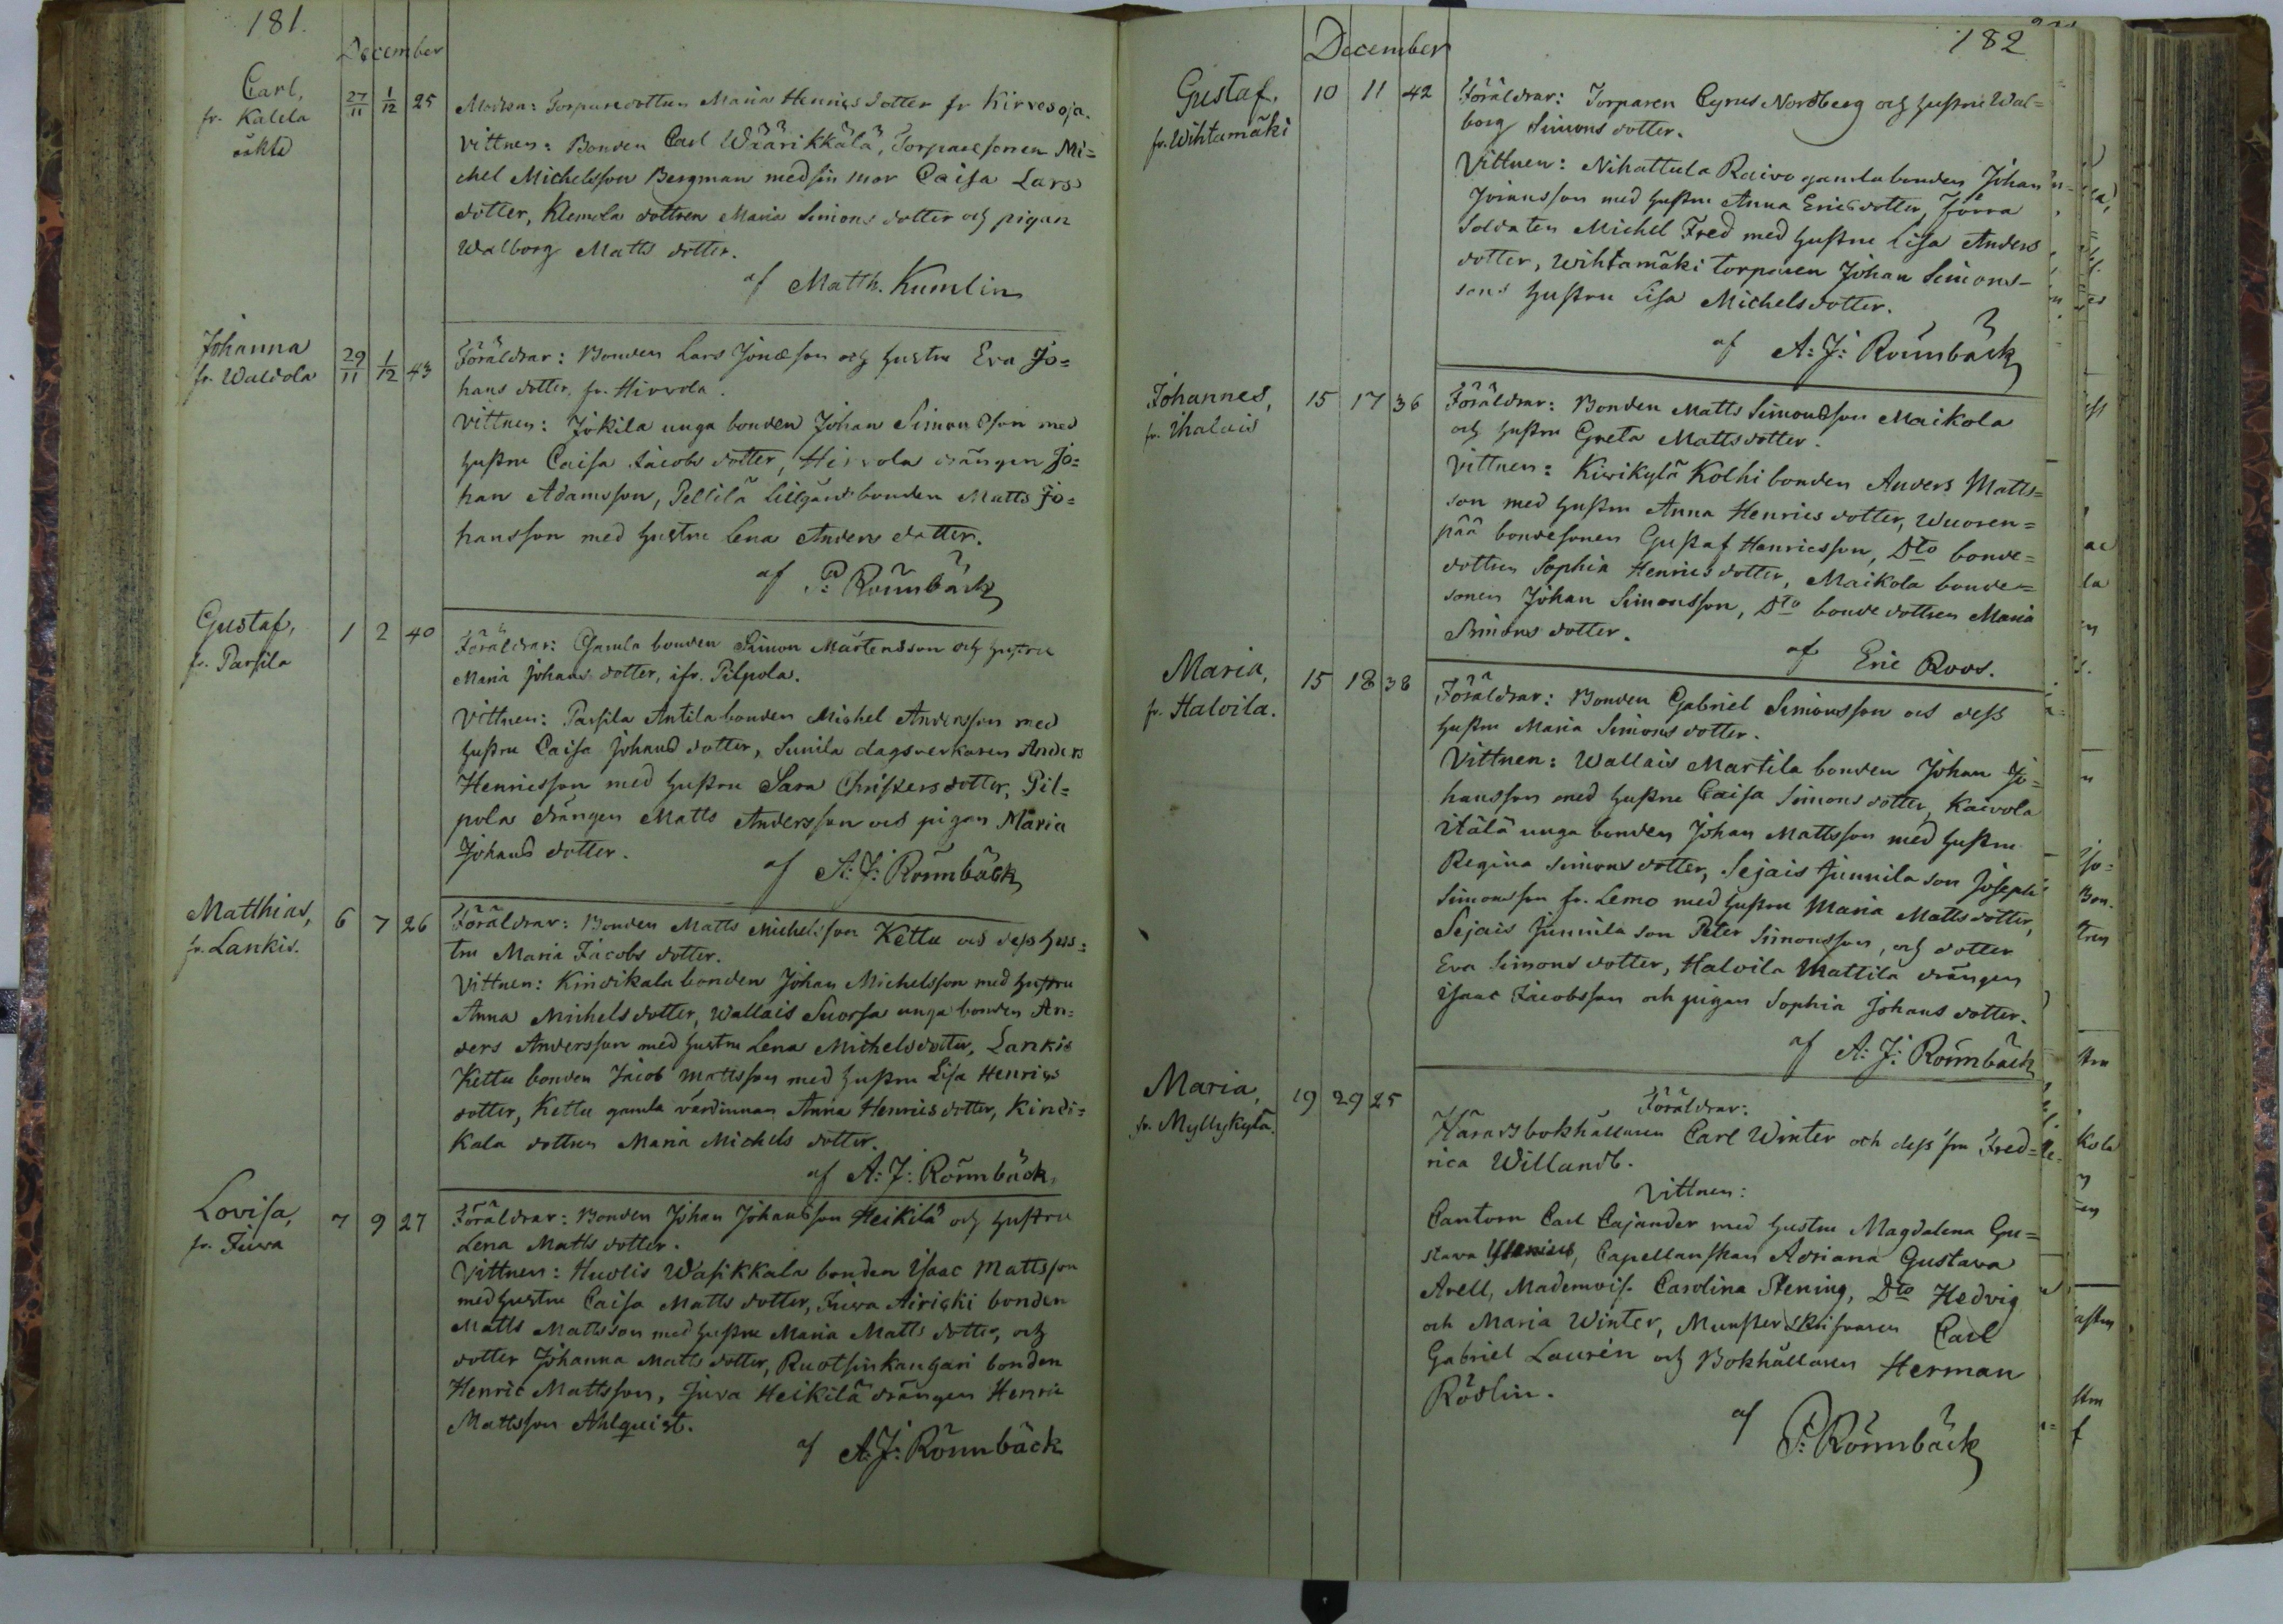 181.
December
Carl,
fr. Kalela
oäkta
27/11 1/12 25
Modren: Torparedottren Maria Henricsdotter fr Kirvesoja.
Vittnen: Bonden Carl Wäärikkälä, Torparesonen Mi=
chel Michelsson Bergman med sin mor Caisa Lars
dotter, Klemola dottren Maria Simonsdotter och pigan
Walborg Matts dotter.
af Matth. Kumlin
Johanna
fr. Waldola
29/11 1/12 43
Föräldrar: Bonden Lars Jonæson och hustru Eva Jo=
hans dotter, fr. Hirvola.
Vittnen: Jokila unga bonden Johan Simonsson med
hustru Caisa Jacobs dotter, Hirvola drängen Jo=
han Adamsson, Peltilä Lillgårds bonden Matts Jo=
hansson med hustru Lena Anders dotter.
af P: Rönnbäck
Gustaf,
fr. Parsila
1 2 40
Föräldrar: Gamla bonden Simon Mårtensson och hustru
Maria Johans dotter, ifr. Pilpola.
Vittnen: Parsila Antila bonden Michel Andersson med
hustru Caisa Johans dotter, Sunila dagsverkaren Anders
Henricsson med hustru Sara Christersdotter, Pil=
pola drängen Matts Andersson och pigan Maria
Johans dotter.
af A: J: Rönnbäck
Matthias,
fr. Lankis.
6 7 26
Föräldrar: Bonden Matts Michelsson Kettu och dess hus=
tru Maria Jacobs dotter.
Vittnen: Kindikala bonden Johan Michelsson med hustru
Anna Michels dotter, Wallais Suorsa unga bonden An=
ders Andersson med hustru Lena Michelsdotter, Lankis
Kettu bonden Jacob Mattsson med hustru Lisa Henrics
dotter, Kettu gamla värdinnan Anna Henricsdotter, Kindi=
kala dottren Maria Michels dotter.
af A: J: Rönnbäck.
Lovisa,
fr. Juva
7 9 27
Föräldrar: Bonden Johan Johansson Heikilä och hustru
Lena Matts dotter.
Vittnen: Huolis Wasikkala bonden Isaac Mattsson
med hustru Caisa Matts dotter, Juva Airikki bonden
Matts Mattsson med hustru Maria Matts dotter, och
dotter Johanna Matts dotter, Ruotsinkangari bonden
Henric Mattsson, Juva Heikilä drängen Henric
Mattsson Ahlquist.
af A: J: Rönnbäck
182
December
Gustaf,
fr. Wihtamäki
10 11 42
Föräldrar: Torparen Cyrus Nordberg och hustru Wal=
borg Simons dotter.
Vittnen: Nihattula Raivo gamla bonden Johan
Johansson med hustru Anna Ericsdotter, Förra
Soldaten Michel Fred med hustru Lisa Anders
dotter, Wihtamäki torparen Johan Simons-
sons hustru Lisa Michelsdotter.
af A: J: Rönnbäck
Johannes,
fr. Ihalais
15 17 36
Föräldrar: Bonden Matts Simonsson Maikola
och hustru Greta Mattsdotter.
Vittnen: Kivikylä Kolhi bonden Anders Matts=
son med hustru Anna Henricsdotter, Wuoren=
pää bondesonen Gustaf Henricsson, Dto bonde=
dottren Sophia Henricsdotter, Maikola bonde=
sonen Johan Simonsson, Dto bonde dottren Maria
Simons dotter.
af Eric Roos.
Maria,
fr. Haloila.
15 18 38
Föräldrar: Bonden Gabriel Simonsson och dess
hustru Maria Simons dotter.
Vittnen: Wallais Martila bonden Johan Jo=
hansson med hustru Caisa Simons dotter, Kaivola
Itälä unga bonden Johan Mattsson med hustru
Regina Simons dotter, Sejais Junnila son Joseph
Simonsson fr. Lemo med hustru Maria Mattsdotter,
Sejais Junnila son Peter Simonsson, och dotter
Eva Simons dotter, Haloila Mattila drängen
Isaac Jacobsson och pigan Sophia Johans dotter.
af A: J: Rönnbäck
Maria,
fr. Myllykylä.
19 29 25
Föräldrar:
Häradsbokhållaren Carl Winter och dess fru Fred=
rica Willandt.
Vittnen:
Cantorn Carl Cajander med hustru Magdalena Gu=
stava Ylenius, Capellanskan Adriana Gustava
Arell, Mademois. Carolina Stening, Dto Hedvig
och Maria Winter, Munsterskrifvaren Carl
Gabriel Laurén och Bokhållaren Herman
Rödlin.
af P: Rönnbäck